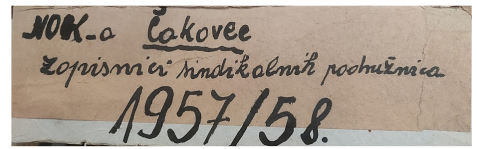 NOK-a Čakovec
Zapisnici sindikalnih podružnica
1957/58.